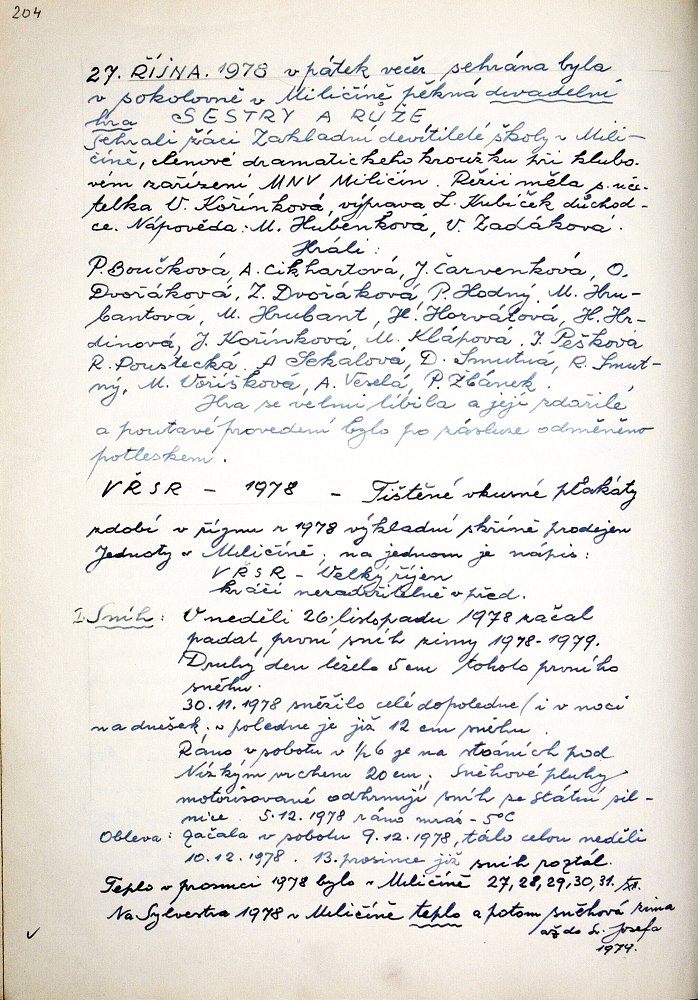 204
27. ŘÍJNA. 1978 v pátek večer sehrána byla
v sokolovně v Miličíně pěkná divadelní
hra SESTRY A RŮŽE
Sehráli žáci Základní devítileté školy v Mili-
číně, členové dramatického kroužku při klubo-
vém zařízení MNV Miličín. Režii měla s. uči-
telka V. Kořínková, výprava L. Kubíček důchod-
ce. Nápověda: M. Hubenková, V. Zadáková.
Hráli:
P. Boučková, A. Cikhartová, J. Červenková, O.
Dvořáková, Z. Dvořáková, P. Hodný, M. Hru-
bantová, M. Hrubant, H. Horvátová, H. Hr-
dinová, J. Kořínková, M. Klápová, I. Pešková
R. Poustecká, A Sekalová, D. Smutná, R. Smut-
ný, M. Voříšková, A. Veselá, P. Zbánek.
Hra se velmi líbila a její zdařilé
a poutavé provedení bylo po zásluze odměněno
potleskem.
VŘSR - 1978 - Tištěné vkusné plakáty
zdobí v říjnu r 1978 výkladní skříně prodejen
Jednoty v Miličíně; na jednom je nápis:
VŘSR - Velký říjen
kráčí nezadržitelně vpřed.
I. Sníh: V neděli 26. listopadu 1978 začal
padat první sníh zimy 1978-1979.
Druhý den leželo 5 cm tohoto prvního
sněhu.
30.11.1978 sněžilo celé dopoledne (i v noci
na dnešek; v poledne je již 12 cm sněhu.
Ráno v sobotu v 1/2 6 je na stráních pod
Nízkým vrchem 20 cm; Sněhové pluhy
motorisované odhrnují sníh ze státní sil-
nice. 5.12.1978 ráno mráz - 5°C
Obleva: začala v sobotu 9.12.1978, tálo celou neděli
10.12.1978. 13. prosince již sníh roztál.
Teplo v prosinci 1978 bylo v Miličíně 27, 28, 29, 30, 31. XII.
Na Sylvestra 1978 v Miličíně teplo a potom sněhová zima
až do sv. Josefa
1979.